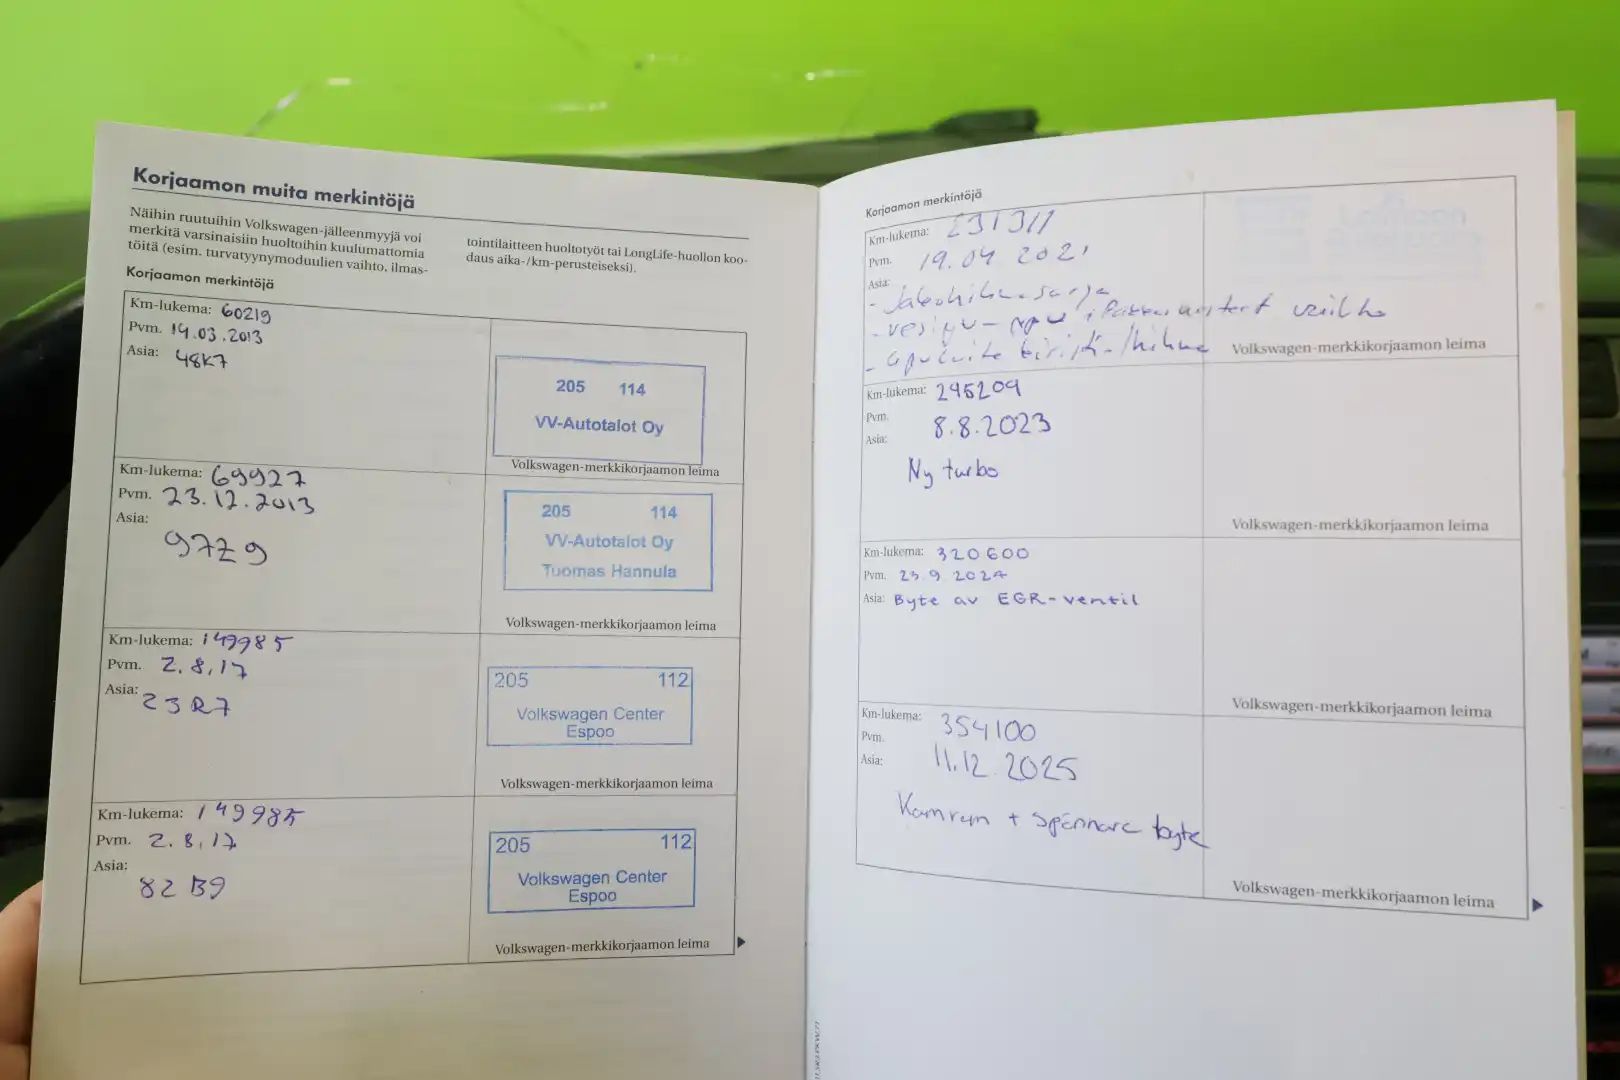 Korjaamon muita merkintöjä
Näihin ruutuihin Volkswagen-jälleenmyyjä voi
merkitä varsinaisiin huoltoihin kuulumattomia
töitä (esim. turvatyynymoduulien vaihto, ilmas-
tointilaitteen huoltotyöt tai LongLife-huollon koo-
daus aika-/km-perusteiseksi).
Korjaamon merkintöjä
Km-lukema: 60219
Pvm. 19.03.2013
Asia: 48K7
205 114
VV-Autotalot Oy
Volkswagen-merkkikorjaamon leima
Km-lukema: 69927
Pvm. 23.12.2013
Asia:
97Z9
205 114
VV-Autotalot Oy
Tuomas Hannula
Volkswagen-merkkikorjaamon leima
Km-lukema: 149985
Pvm. 2.8.17
Asia: 23R7
205 112
Volkswagen Center
Espoo
Volkswagen-merkkikorjaamon leima
Km-lukema: 149985
Pvm. 2.8.17
Asia:
82B9
205 112
Volkswagen Center
Espoo
Volkswagen-merkkikorjaamon leima
Korjaamon merkintöjä
Km-lukema: 231311
Pvm. 19.04 2021
Asia:
- Jakohihnasarja
- vesipu-ppu
- apulaite
Volkswagen-merkkikorjaamon leima
Km-lukema: 295209
Pvm. 8.8.2023
Asia:
Ny turbo
Volkswagen-merkkikorjaamon leima
Km-lukema: 320600
Pvm. 23.9.2024
Asia: Byte av EGR-ventil
Volkswagen-merkkikorjaamon leima
Km-lukema: 354100
Pvm. 11.12.2025
Asia:
Kamrem + spännare byte
Volkswagen-merkkikorjaamon leima